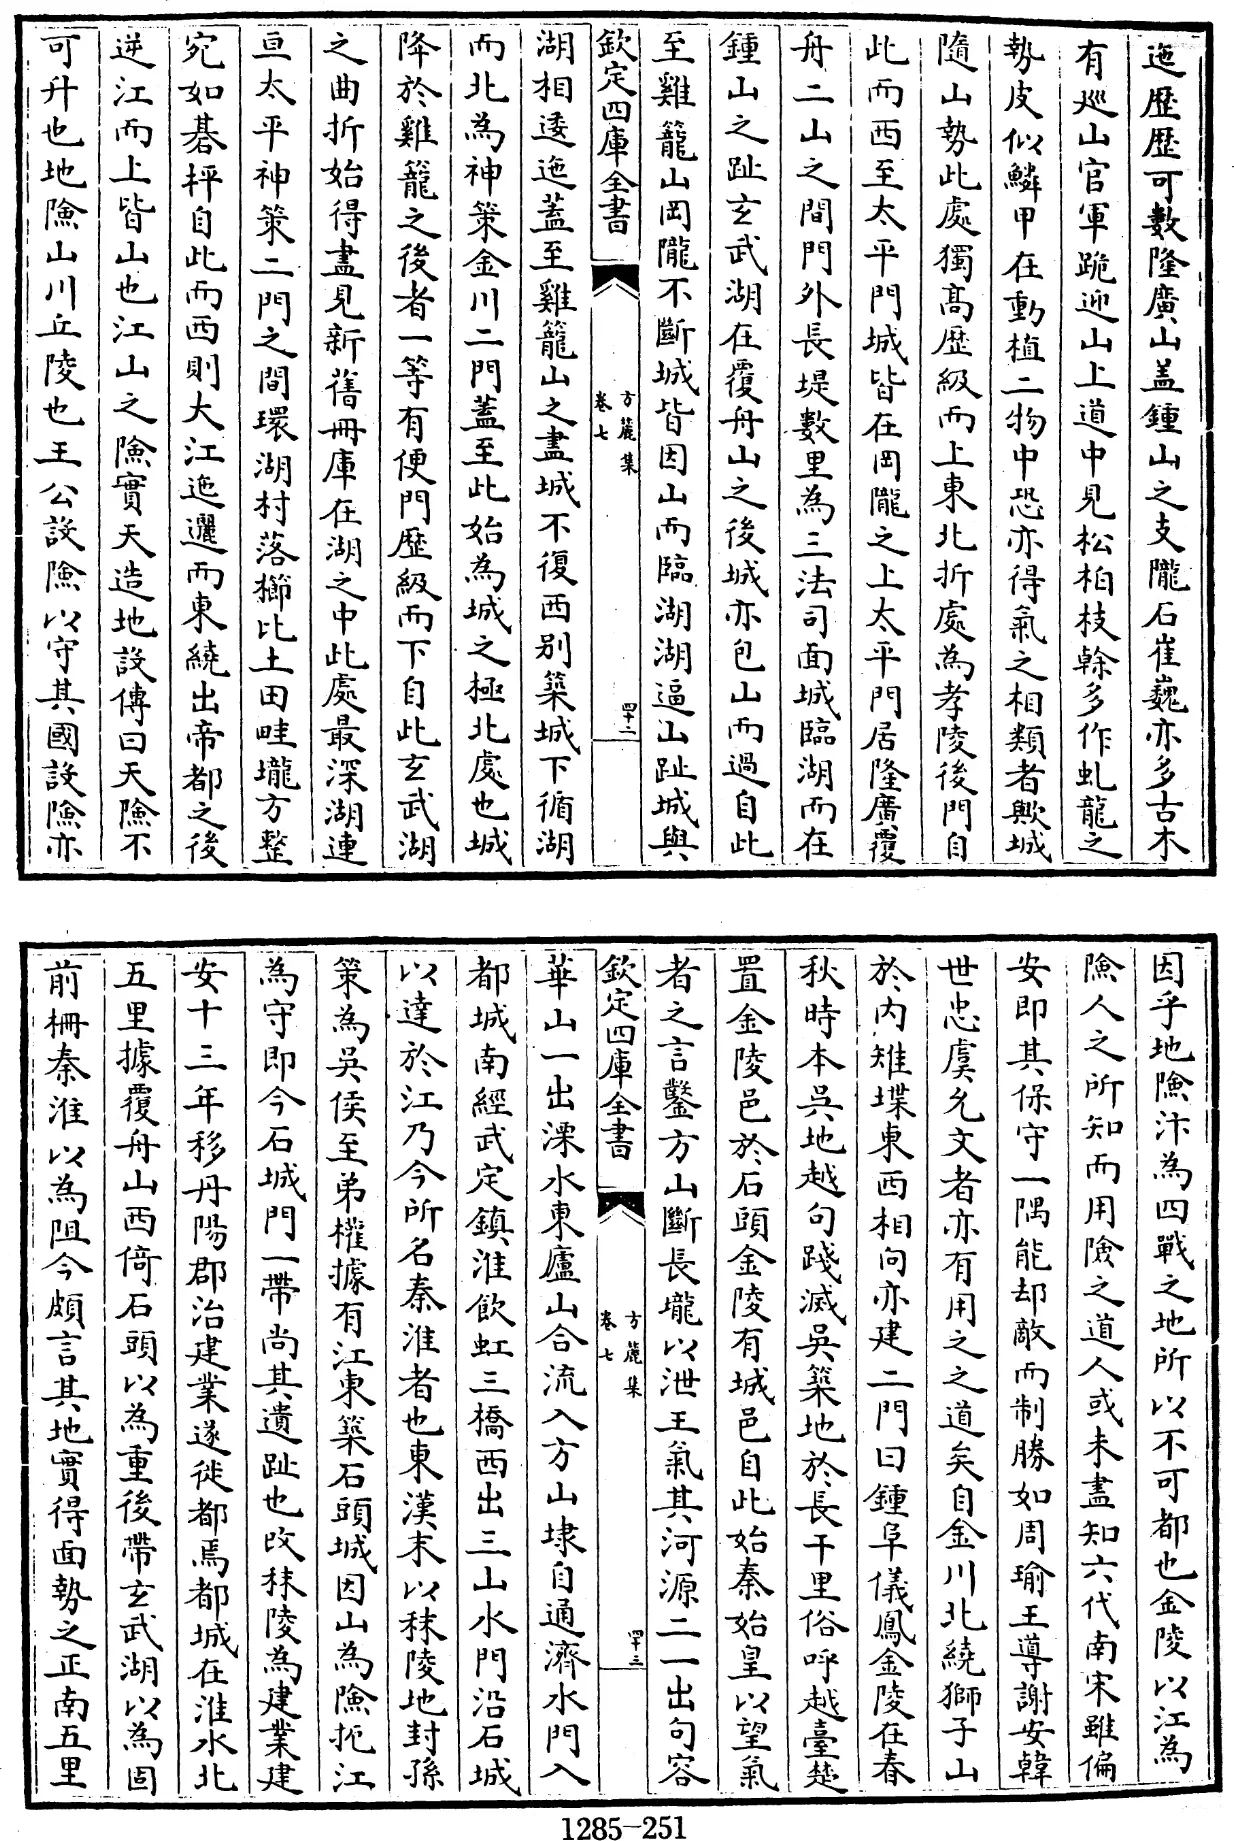 迤歴歴可數隆廣山盖鍾山之支隴石崔巍亦多古木
有巡山官軍跪迎山上道中見松柏枝榦多作虬龍之
勢皮似鱗甲在動植二物中恐亦得氣之相類者歟城
隨山勢此處獨髙歴級而上東北折處為孝陵後門自
此而西至太平門城皆在岡隴之上太平門居隆廣覆
舟二山之間門外長堤數里為三法司面城臨湖而在
鍾山之趾玄武湖在覆舟山之後城亦包山而過自此
至雞籠山岡隴不斷城皆因山而臨湖湖逼山趾城與
欽定四庫全書
方麓集
卷七
四十二
湖相逶迤蓋至雞籠山之盡城不復西别築城下循湖
而北為神策金川二門蓋至此始為城之極北處也城
降於雞籠之後者一等有便門歴級而下自此玄武湖
之曲折始得盡見新舊冊庫在湖之中此處最深湖連
亘太平神策二門之間環湖村落櫛比土田畦壠方整
宛如碁枰自此而西則大江迤邐而東繞出帝都之後
逆江而上皆山也江山之險實天造地設傳曰天險不
可升也地險山川丘陵也王公設險以守其國設險亦
因乎地險汴為四戰之地所以不可都也金陵以江為
險人之所知而用險之道人或未盡知六代南宋雖偏
安即其保守一隅能却敵而制勝如周瑜王導謝安韓
世忠虞允文者亦有用之之道矣自金川北繞獅子山
於内雉堞東西相向亦建二門曰鍾阜儀鳳金陵在春
秋時本吳地越句踐滅吳築地於長干里俗呼越臺楚
置金陵邑於石頭金陵有城邑自此始秦始皇以望氣
者之言鑿方山斷長壠以泄王氣其河源二一出句容
欽定四庫全書
方麓集
卷七
四十三
華山一出溧水東廬山合流入方山埭自通濟水門入
都城南經武定鎮淮飲虹三橋西出三山水門沿石城
以達於江乃今所名秦淮者也東漢末以秣陵地封孫
策為吳侯至弟權據有江東築石頭城因山為險扼江
為守即今石城門一帶尚其遺趾也改秣陵為建業建
安十三年移丹陽郡治建業遂徙都焉都城在淮水北
五里據覆舟山西倚石頭以為重後帶玄武湖以為固
前柵秦淮以為阻今頗言其地實得面勢之正南五里
1285-251